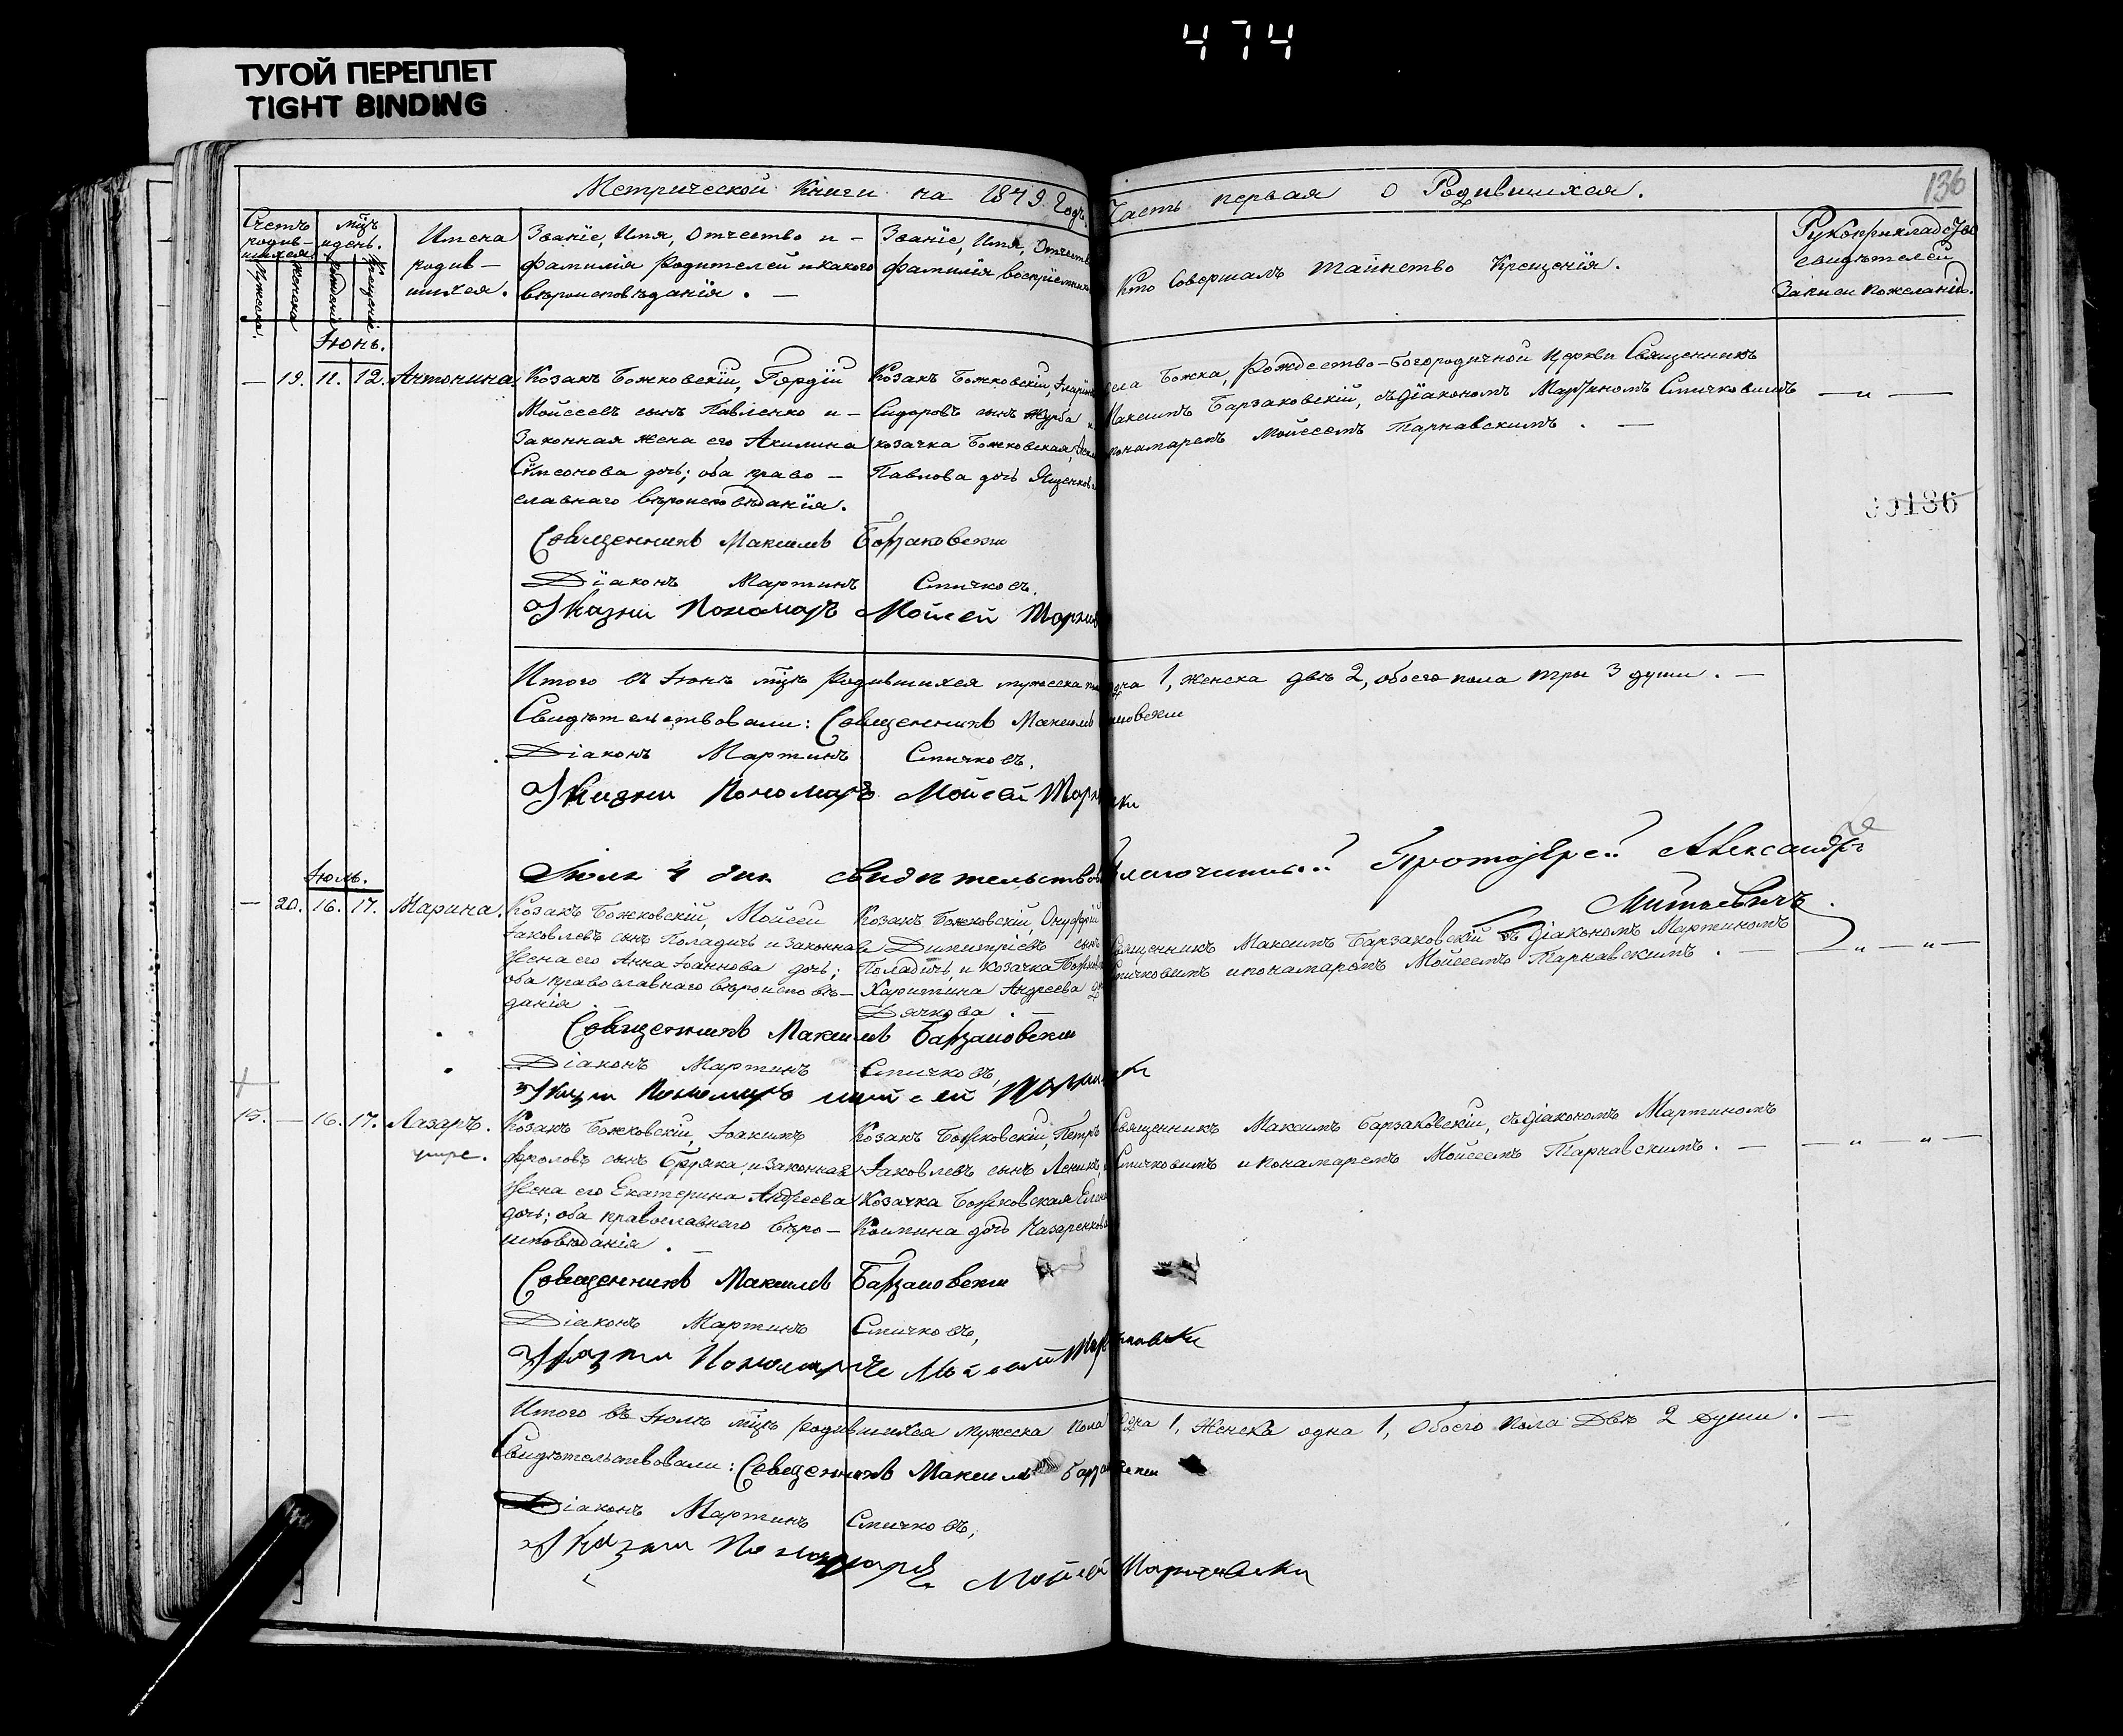 474
ТУГОЙ ПЕРЕПЛЕТ
TIGHT BINDING
136
Метрической Книги на 1849. Годъ, Часть первая о Родившихся.
Счетъ родив-шихся.
Мужеска.
Женска
мцъ и день.
Рожденія
Крещенія
Имена родив-шихся.
Званіе, Имя, Отчество и -
фамилія Родителей и какого
вѣроисповѣданія. —
Званіе, Имя, Отчество
фамилія воспріемник
Кто Совершалъ таинство Крещенія.
Рукоприкладство
свидѣтелей
Записи по желанію.
Іюнь.
— 19. 11. 12. Антонина.
Козакъ Божковскій, Гордій
Мойсеевъ сынъ Павленко и —
Законная жена его Акилина
Симеонова дочь; оба право —
славнаго вѣроисповѣданія.
Козакъ Божковскій,
Сидоровъ сынъ Журба и
козачка Божковская,
Павлова дочь Яценкова
села Божка, Рождество-Богородичной Церкви Священникъ
Максимъ Барзаковскій, съ діакономъ Мартиномъ Спичковимъ
пономаремъ Мойсеемъ Тарнавскимъ. —
— „ —
136
Священникъ Максимъ Барзаковскій
Діаконъ Мартинъ Спичковъ.
Указни Пономаръ Мойсей
Итого въ Іюнѣ мцѣ Родившихся мужеска пола одна 1, женска двѣ 2, обоего пола три 3 души. —
Свидѣтельствовали: Священникъ Максимъ
Діаконъ Мартинъ Спичковъ.
Указни Пономаръ Мойсей
Іюля 4 дня свидѣтельствовалъ Благочинный Протоіерей Александръ
Митькевичъ.
Іюль.
— 20. 16. 17. Марина.
Козакъ Божковскій, Мойсей
Іаковлевъ сынъ Поладичъ и законная
жена его Анна Іоаннова дочь;
оба православнаго вѣроисповѣ—
данія.
Козакъ Божковскій, Онуфрій
Димитріевъ сынъ
Поладичъ и козачка
Харитина Андреева
Дячкова.
Священникъ Максимъ Барзаковскій съ діакономъ Мартиномъ
Спичковимъ и пономаремъ Мойсеемъ Тарнавскимъ. —
— „ — „ —
Священникъ Максимъ Барзаковскій
Діаконъ Мартинъ Спичковъ,
Указни Пономаръ Мойсей
15. — 16. 17. Лазаръ.
умре.
Козакъ Божковскій, Іоакимъ
Фроловъ сынъ и законная
жена его Екатерина Андреева
дочь; оба православнаго вѣро—
исповѣданія. —
Козакъ Божковскій, Петръ
Іаковлевъ сынъ
Козачка Божковская
Козмина дочь
Священникъ Максимъ Барзаковскій, съ діакономъ Мартиномъ
Спичковимъ и пономаремъ Мойсеемъ Тарнавскимъ. —
— „ „ —
Священникъ Максимъ Барзаковскій
Діаконъ Мартинъ Спичковъ,
Указни Пономаръ Мойсей
Итого въ Іюлѣ мцѣ родившихся мужеска пола одна 1, Женска одна 1, Обоего пола Двѣ 2 души. —
Свидѣтельствовали: Священникъ Максимъ
Діаконъ Мартинъ Спичковъ,
Указни Пономаръ Мойсей Тарнавски